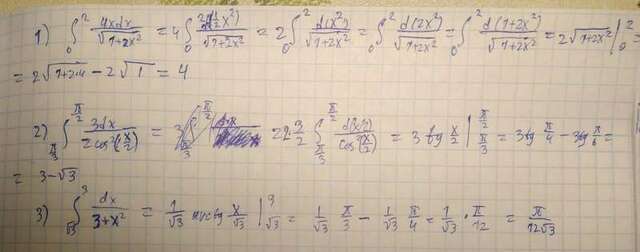 1) ∫₀² 4xdx/√(1+2x²) = 4∫₀² d(½x²)/√(1+2x²) = 2∫₀² d(x²)/√(1+2x²) = ∫₀² d(2x²)/√(1+2x²) = ∫₀² d(1+2x²)/√(1+2x²) = 2√(1+2x²)|₀² =
= 2√(1+2·4) - 2√1 = 4
2) ∫_{π/3}^{π/2} 3dx/(2cos²(x/2)) = = 2·3/2 ∫_{π/3}^{π/2} d(x/2)/cos²(x/2) = 3 tg x/2 |_{π/3}^{π/2} = 3tg π/4 - 3tg π/6 =
= 3-√3
3) ∫_{√3}^{3} dx/(3+x²) = 1/√3 arctg x/√3 |_{√3}^{3} = 1/√3 · π/3 - 1/√3 · π/4 = 1/√3 · π/12 = π/(12√3)